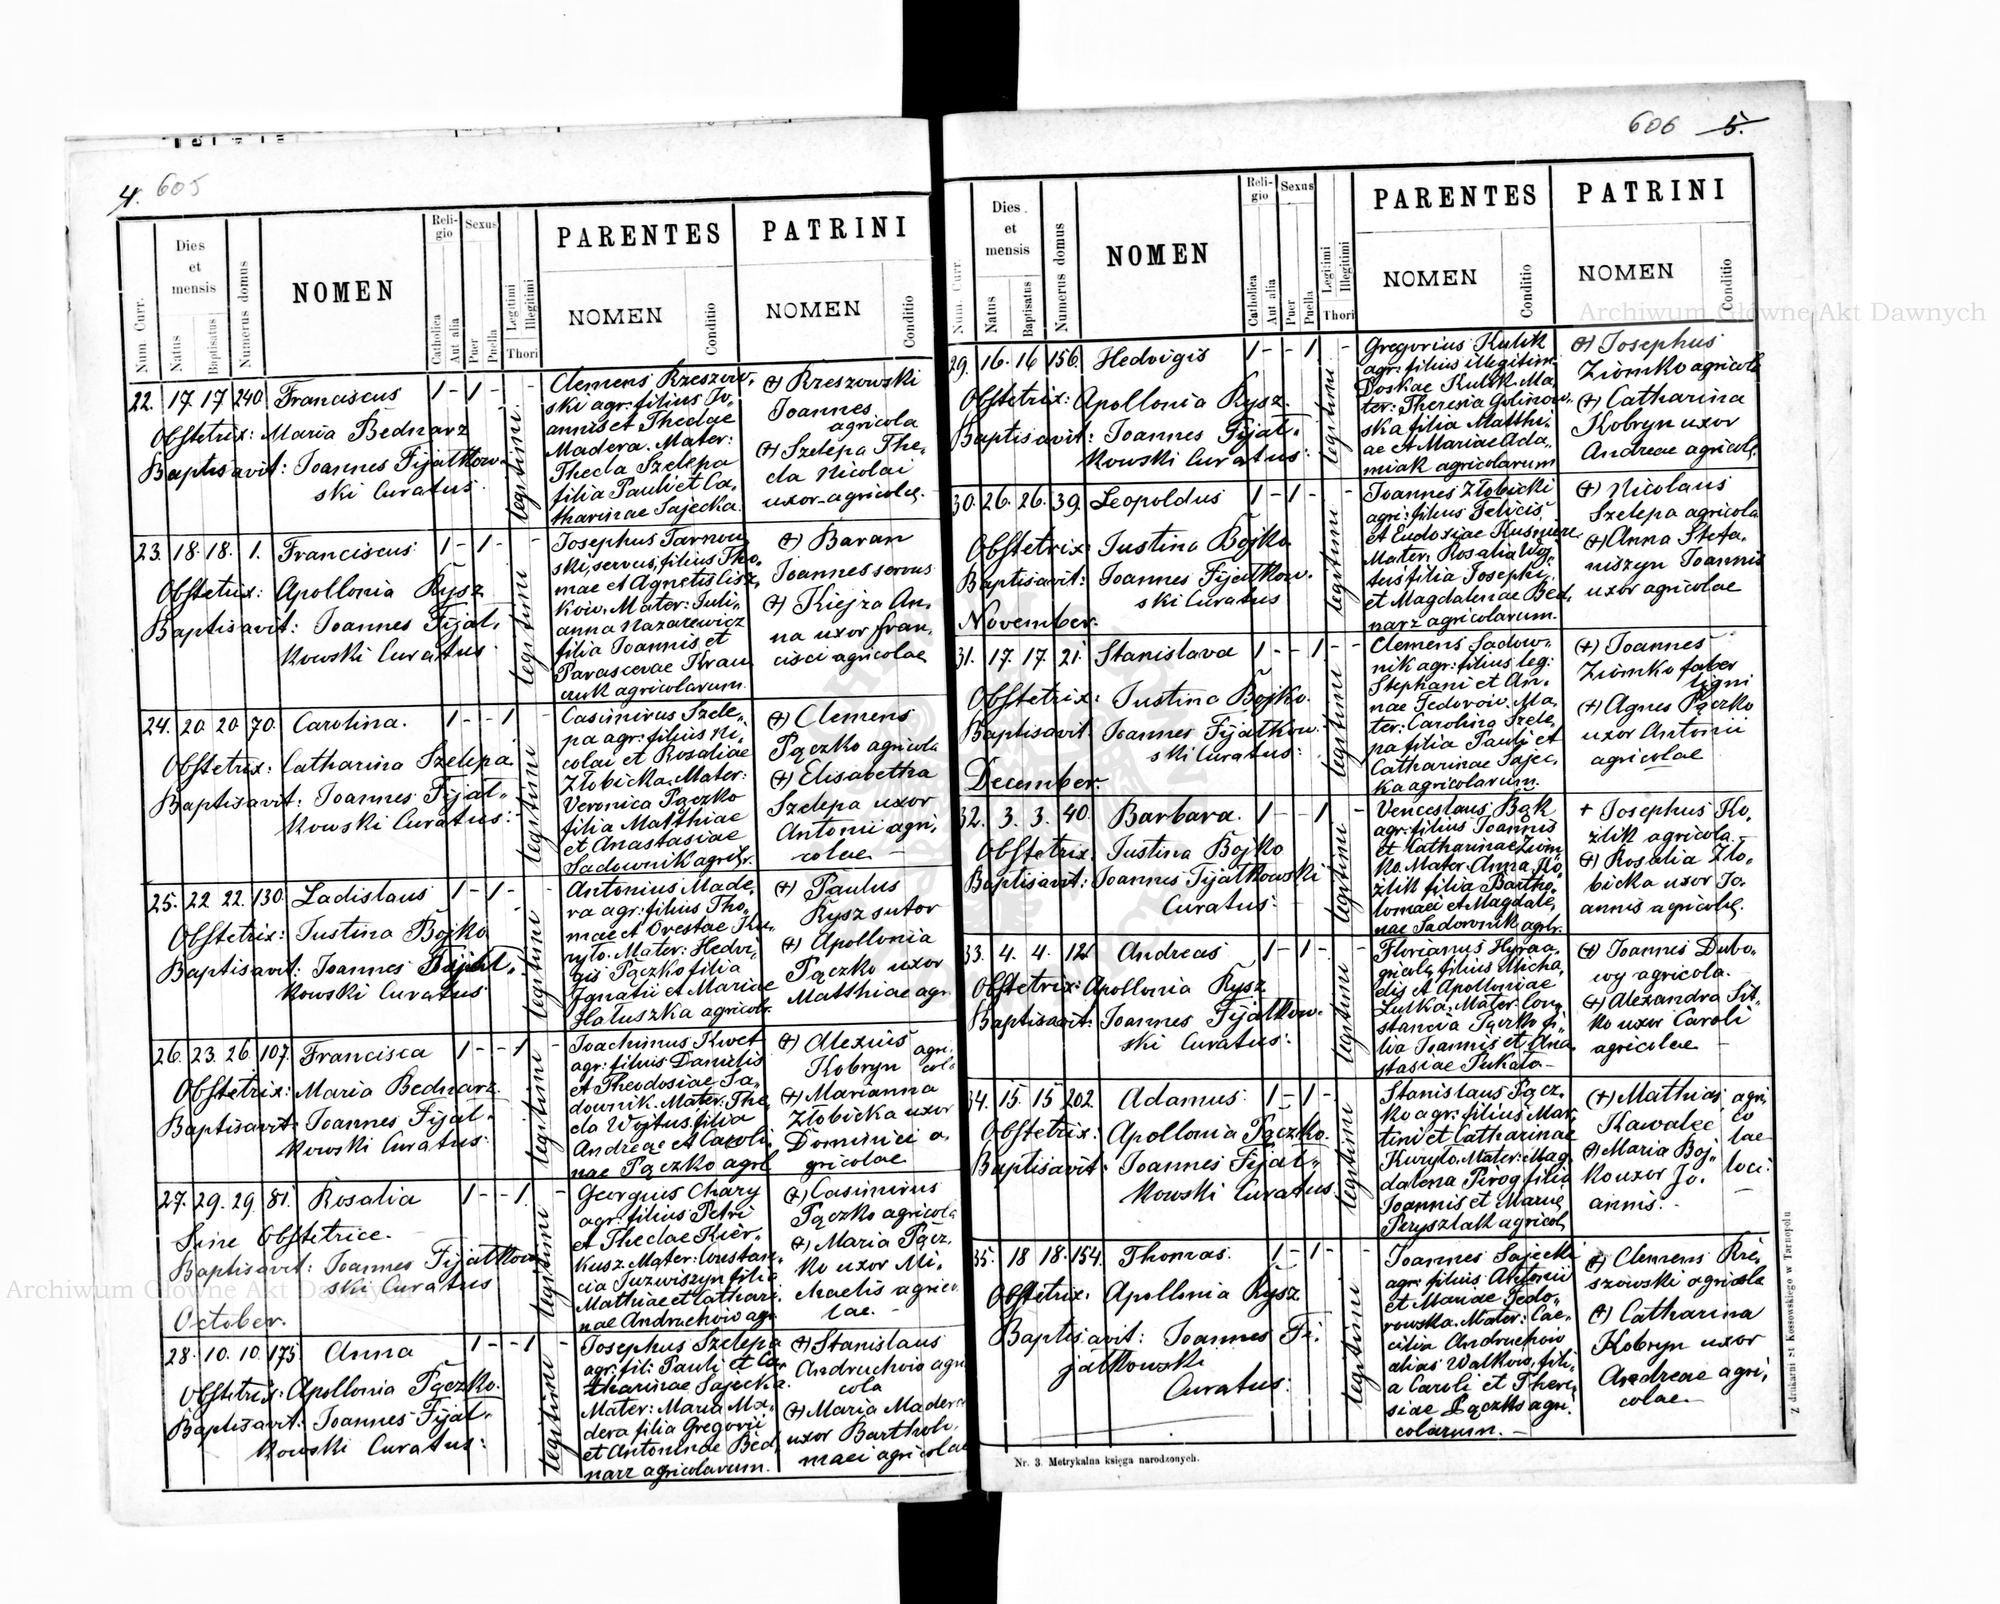 4. 605
Num. Curr.
Dies et mensis
Natus
Baptisatus
Numerus domus
NOMEN
Religio
Catholica
Aut alia
Sexus
Puer
Puella
Legitimi
Illegitimi
Thori
PARENTES
NOMEN
Conditio
PATRINI
NOMEN
Conditio
22. 17. 17 240 Franciscus 1 - 1 - -
Obstetrix: Maria Bednarz
Baptisavit: Joannes Fijałkow-
ski Curatus.
legitimi
Clemens Rzeszow,
ski agr: filius Jo,
annis et Theclae
Madera. Mater:
Thecla Szelepa
filia Pauli et Ca,
tharinae Sajecka.
(+) Rzeszowski
Joannes
agricola
(+) Szelepa The-
cla Nicolai
uxor agricolae.
23. 18. 18. 1. Franciscus 1 - 1 - -
Obstetrix: Apollonia Rysz
Baptisavit: Joannes Fijał,
kowski Curatus.
legitimi
Josephus Tarnow
ski, servus, filius Tho,
mae et Agnetis Lisz,
kow. Mater: Juli,
anna Nazarewicz
filia Joannis et
Parascevae Kraw
czuk agricolarum.
(+) Baran
Joannes servus
(+) Kiejza An,
na uxor Fran,
cisci agricolae
24. 20. 20 70. Carolina. 1 - - 1 -
Obstetrix: Catharina Szelepa
Baptisavit: Joannes Fijał,,
kowski Curatus:
legitimi
Casimirus Szele,,
pa agr: filius Ni,
colai et Rosaliae
Złobicka. Mater:
Veronica Pączko
filia Matthiae
et Anastasiae
Sadownik agrclr.
(+) Clemens
Pączko agricola
(+) Elisabetha
Szelepa uxor
Antonii agri,
colae -
25. 22 22. 130. Ladislaus 1 - 1 - -
Obstetrix: Justina Bojko
Baptisavit: Joannes Fijał,,
kowski Curatus
legitimi
Antonius Made,
ra agr: filius Tho,
mae et Orestae Ku,
ryło. Mater: Hedvi,
gis Pączko filia
Ignatii et Mariae
Hałuszka agricolr.
(+) Paulus
Rysz sutor
(+) Apollonia
Pączko uxor
Matthiae agr.
26. 23. 26. 107. Francisca 1 - - 1 -
Obstetrix: Maria Bednarz.
Baptisavit: Joannes Fijał-
kowski Curatus:
legitimi
Joachimus Kwet
agr: filius Danielis
et Theodosiae Sa,
downik. Mater: The,
cla Wojtus filia
Andreae et Caroli,
nae Pączko agrcl.
(+) Alexius agri,
Kobryn cola
(+) Marianna
Złobicka uxor
Dominici a,
gricolae
27. 29. 29. 81. Rosalia 1 - - 1. -
Sine Obstetrice. -
Baptisavit: Joannes Fijałkow
ski Curatus
legitimi
Georgius Chary
agr: filius Petri
et Theclae Kier,,
kusz. Mater: Constan,
cia Juzwiszyn filia
Mathiae et Cathari,
nae Andruchow agr.
(+) Casimirus
Pączko agricola
(+) Maria Pącz,
ko uxor Mi,
chaelis agrico
lae. -
October.
28. 10. 10. 175 Anna 1 - - 1 -
Obstetrix: Apollonia Pączko.
Baptisavit: Joannes Fijał,,
kowski Curatus:
legitimi
Josephus Szelepa
agr: fil: Pauli et Ca,
tharinae Sajecka.
Mater: Maria Ma,
dera filia Gregorii
et Antoninae Bed,
narz agricolarum.
(+) Stanislaus
Andruchow agri
cola
(+) Maria Madera
uxor Bartholo,
maei agricolae
606 5.
Num. Curr.
Dies et mensis
Natus
Baptisatus
Numerus domus
NOMEN
Religio
Catholica
Aut alia
Sexus
Puer
Puella
Legitimi
Illegitimi
Thori
PARENTES
NOMEN
Conditio
PATRINI
NOMEN
Conditio
29. 16. 16 156. Hedvigis 1 - - 1. -
Obstetrix: Apollonia Rysz.
Baptisavit: Joannes Fijał,
kowski Curatus:
legitimi
Gregorius Kulik
agr: filius illegitim.
Doskae Kulik. Ma,
ter: Theresia Golinow,
ska filia Matthi,
ae et Mariae Ada,
miak agricolarum
(+) Josephus
Ziomko agricola
(+) Catharina
Kobryn uxor
Andreae agricol.
30. 26. 26. 39. Leopoldus 1 - 1 - -
Obstetrix: Justina Bojko
Baptisavit: Joannes Fijałkow.
ski Curatus
legitimi
Joannes Złobicki
agr: filius Felicis
et Eudoxiae
Mater: Rosalia Woj,
tus filia Josephi
et Magdalenae Bed,
narz agricolarum.
(+) Nicolaus
Szelepa agricola
(+) Anna Stefa,
niszyn Joannis
uxor agricolae
November.
31. 17. 17. 21. Stanislava 1 - - 1 - -
Obstetrix: Justina Bojko.
Baptisavit: Joannes Fijałkow.
ski Curatus:
legitimi
Clemens Sadow,,
nik agr: filius leg:
Stephani et An,
nae Fedorow. Ma,
ter: Carolina Szele,
pa filia Pauli et
Catharinae Sajec,
ka agricolarum.
(+) Joannes
Ziomko faber
ligni
(+) Agnes Pączko
uxor Antonii
agricolae
December.
32. 3. 3. 40. Barbara. 1 - - 1 -
Obstetrix. Justina Bojko
Baptisavit: Joannes Fijałkowski
Curatus:
legitimi
Venceslaus Bąk
agr: filius Joannis
et Catharinae Ziom
ko. Mater. Anna Ko,
zlik filia Bartho,
lomaei et Magdale,
nae Sadownik agrlr.
+ Josephus Ko,
zlik agricola.
(+) Rosalia Zło,
bicka uxor Jo.
annis agricolae.
33. 4. 4. 121. Andreas 1 - 1 - -
Obstetrix: Apollonia Rysz
Baptisavit: Joannes Fijałkow.
ski Curatus:
legitimi
Florianus Hyra a,
gricola, filius Micha,
elis et Apolloniae
Lulka. Mater: Con,
stancia Pączko fi,
lia Joannis et Ana,
stasiae Pukała -
(+) Joannes Dubo,
wy agricola. -
(+) Alexandra Sit,
ko uxor Caroli
agricolae -
34. 15. 15 202. Adamus. 1 - 1 - -
Obstetrix: Apollonia Pączko.
Baptisavit. Joannes Fijał,,
kowski Curatus.
legitimi
Stanislaus Pącz,
ko agr: filius Mar,
tini et Catharinae
Kuryło. Mater: Mag,
dalena Pirog filia
Joannis et Mariae
Peryszlak agricol.
(+) Mathias agri,
Kawalec co
(+) Maria Boj, lae
ko uxor Jo, loci.
annis. -
35. 18 18. 154. Thomas. 1 - 1 - -
Obstetrix. Apollonia Rysz
Baptisavit: Joannes Fi:
jałkowski
Curatus.
legitimi
Joannes Sajecki
agr: filius Antonii
et Mariae Fedo,
rowska. Mater: Cae,
cilia Andruchow
alias Walkow, fili,
a Caroli et There,
siae Pączko agri,
colarum. -
(+) Clemens Rze,
szowski agricola
(+) Catharina
Kobryn uxor
Andreae agri,
colae. -
Nr. 3. Metrykalna księga narodzonych.
Z drukarni St Kossowskiego w Tarnopolu
Archiwum Główne Akt Dawnych
Archiwum Główne Akt Dawnych